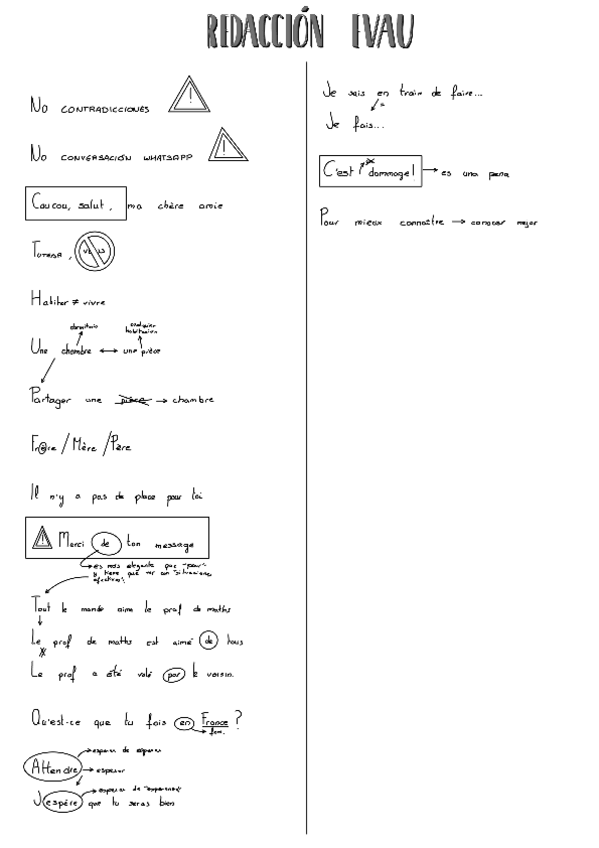 REDACCIÓN EVAU
No CONTRADICCIONES
No CONVERSACIÓN WHATSAPP
Coucou, salut, ma chère amie
Tutear,
Habiter ≠ vivre
dormitorio
cualquier habitación
Une chambre ↔ une pièce
Partager une pièce → chambre
Frère / Mère / Père
Il n'y a pas de place pour toi
! Merci de ton message
es más elegante que "pour"
y tiene que ver con situaciones afectivas
Tout le monde aime le prof de maths
Le prof de maths est aimé de tous
Le prof a été volé par le voisin.
Qu'est-ce que tu fais en France?
fem.
esperar de esperar
Attendre → esperar
esperar de "esperanza"
J'espère que tu seras bien
Je sais en train de faire...
Je fais...
C'est dommage! → es una pena
Pour mieux connaître → conocer mejor